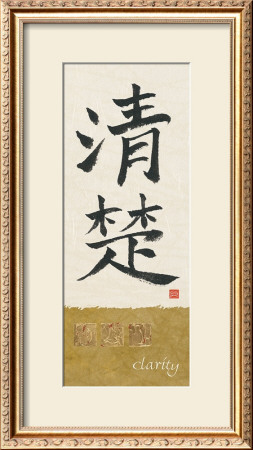 清
楚
clarity